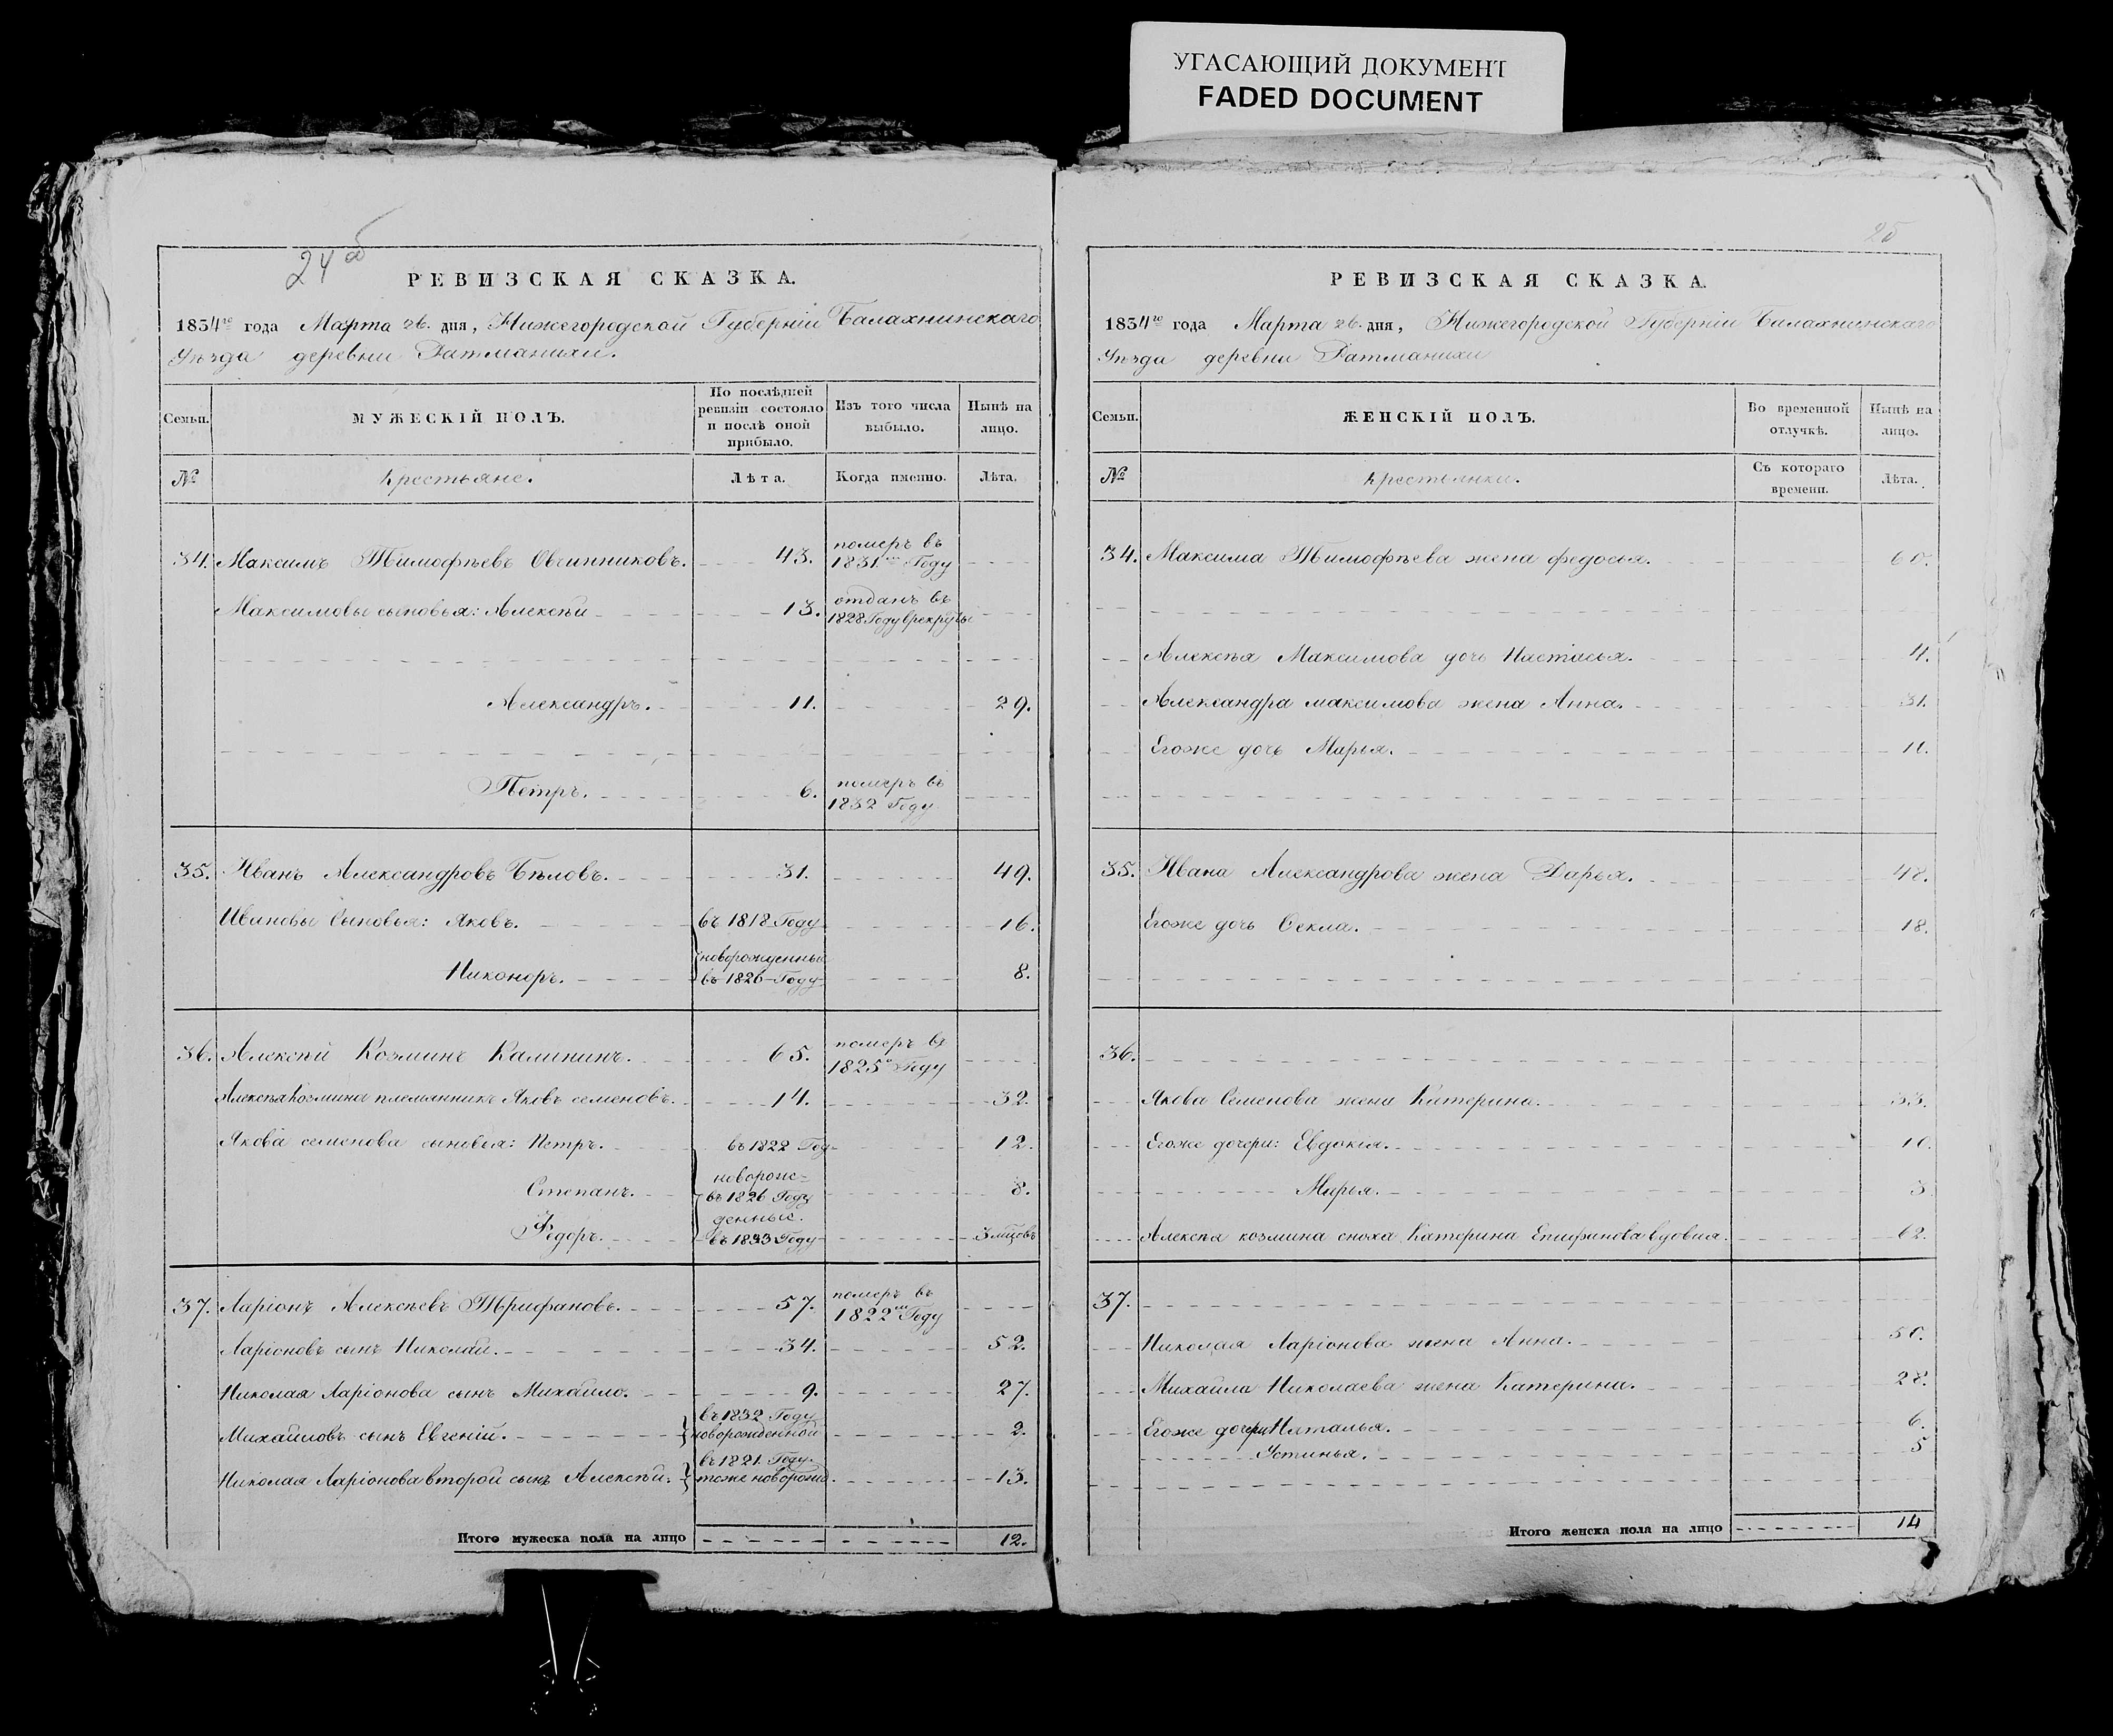 УГАСАЮЩИЙ ДОКУМЕНТ
FADED DOCUMENT
24 об
РЕВИЗСКАЯ СКАЗКА.
1834го года Марта 26. дня, Нижегородской Губерніи Балахнинскаго
Уѣзда деревни Ратманихи.
Семьи. МУЖЕСКІЙ ПОЛЪ. По послѣдней ревизіи состояло и послѣ оной прибыло. Изъ того числа выбыло. Нынѣ на лицо.
№ Крестьяне. Лѣта. Когда именно. Лѣта.
34. Максимъ Тимофѣевъ Овчинниковъ. 43. померъ въ 1831м Году
Максимовы сыновья: Алексѣй 13. отданъ въ 1828 Году врекруты
Александръ. 11. 29.
Петръ. 6. померъ въ 1832 Году
35. Иванъ Александровъ Бѣловъ. 31. 49.
Ивановы Сыновья: Яковъ. въ 1818 Году 16.
Никоноръ. новорожденные въ 1826 Году 8.
36. Алексѣй Козминъ Калининъ. 65. померъ въ 1825 Году
Алексѣя Козмина племянникъ Яковъ семеновъ. 14. 32.
Якова семенова сыновья: Петръ. въ 1822 Год 12.
Степанъ. новорож= въ 1826 Году 8.
Федоръ. денные. въ 1833 Году 3 мѣцовъ
37. Ларіонъ Алексѣевъ Трифановъ. 57. померъ въ 1822м Году
Ларіоновъ сынъ Николай. 34. 52.
Николая Ларіонова сынъ Михайло. 9. 27.
Михайловъ сынъ Евгеній. въ 1832 Году новорожденной 2.
Николая Ларіонова второй сынъ Алексѣй. въ 1821 Году. тоже новорожд. 13.
Итого мужеска пола на лицо 12.
25
РЕВИЗСКАЯ СКАЗКА.
1834го года Марта 26. дня, Нижегородской Губерніи Балахнинскаго
Уѣзда деревни Ратманихи
Семьи. ЖЕНСКІЙ ПОЛЪ. Во временной отлучкѣ. Нынѣ на лицо.
№ Крестьянки. Съ котораго времени. Лѣта.
34. Максима Тимофѣева жена федосья. 60.
Алексѣя Максимова дочь Настасья. 4.
Александра максимова жена Анна. 31.
Егоже дочь Марья. 11.
35. Ивана Александрова жена Дарья. 48.
Егоже дочь Фекла. 18.
36.
Якова Семенова жена Катерина. 33.
Егоже дочери: Евдокія. 10.
Марья. 3
Алексѣя козмина сноха Катерина Епифанова вдовая. 62.
37.
Николая Ларіонова жена Анна. 50.
Михайла Николаева жена Катерина. 28.
Егоже дочери Наталья. 6.
Устинья. 5
Итого женска пола на лицо 14